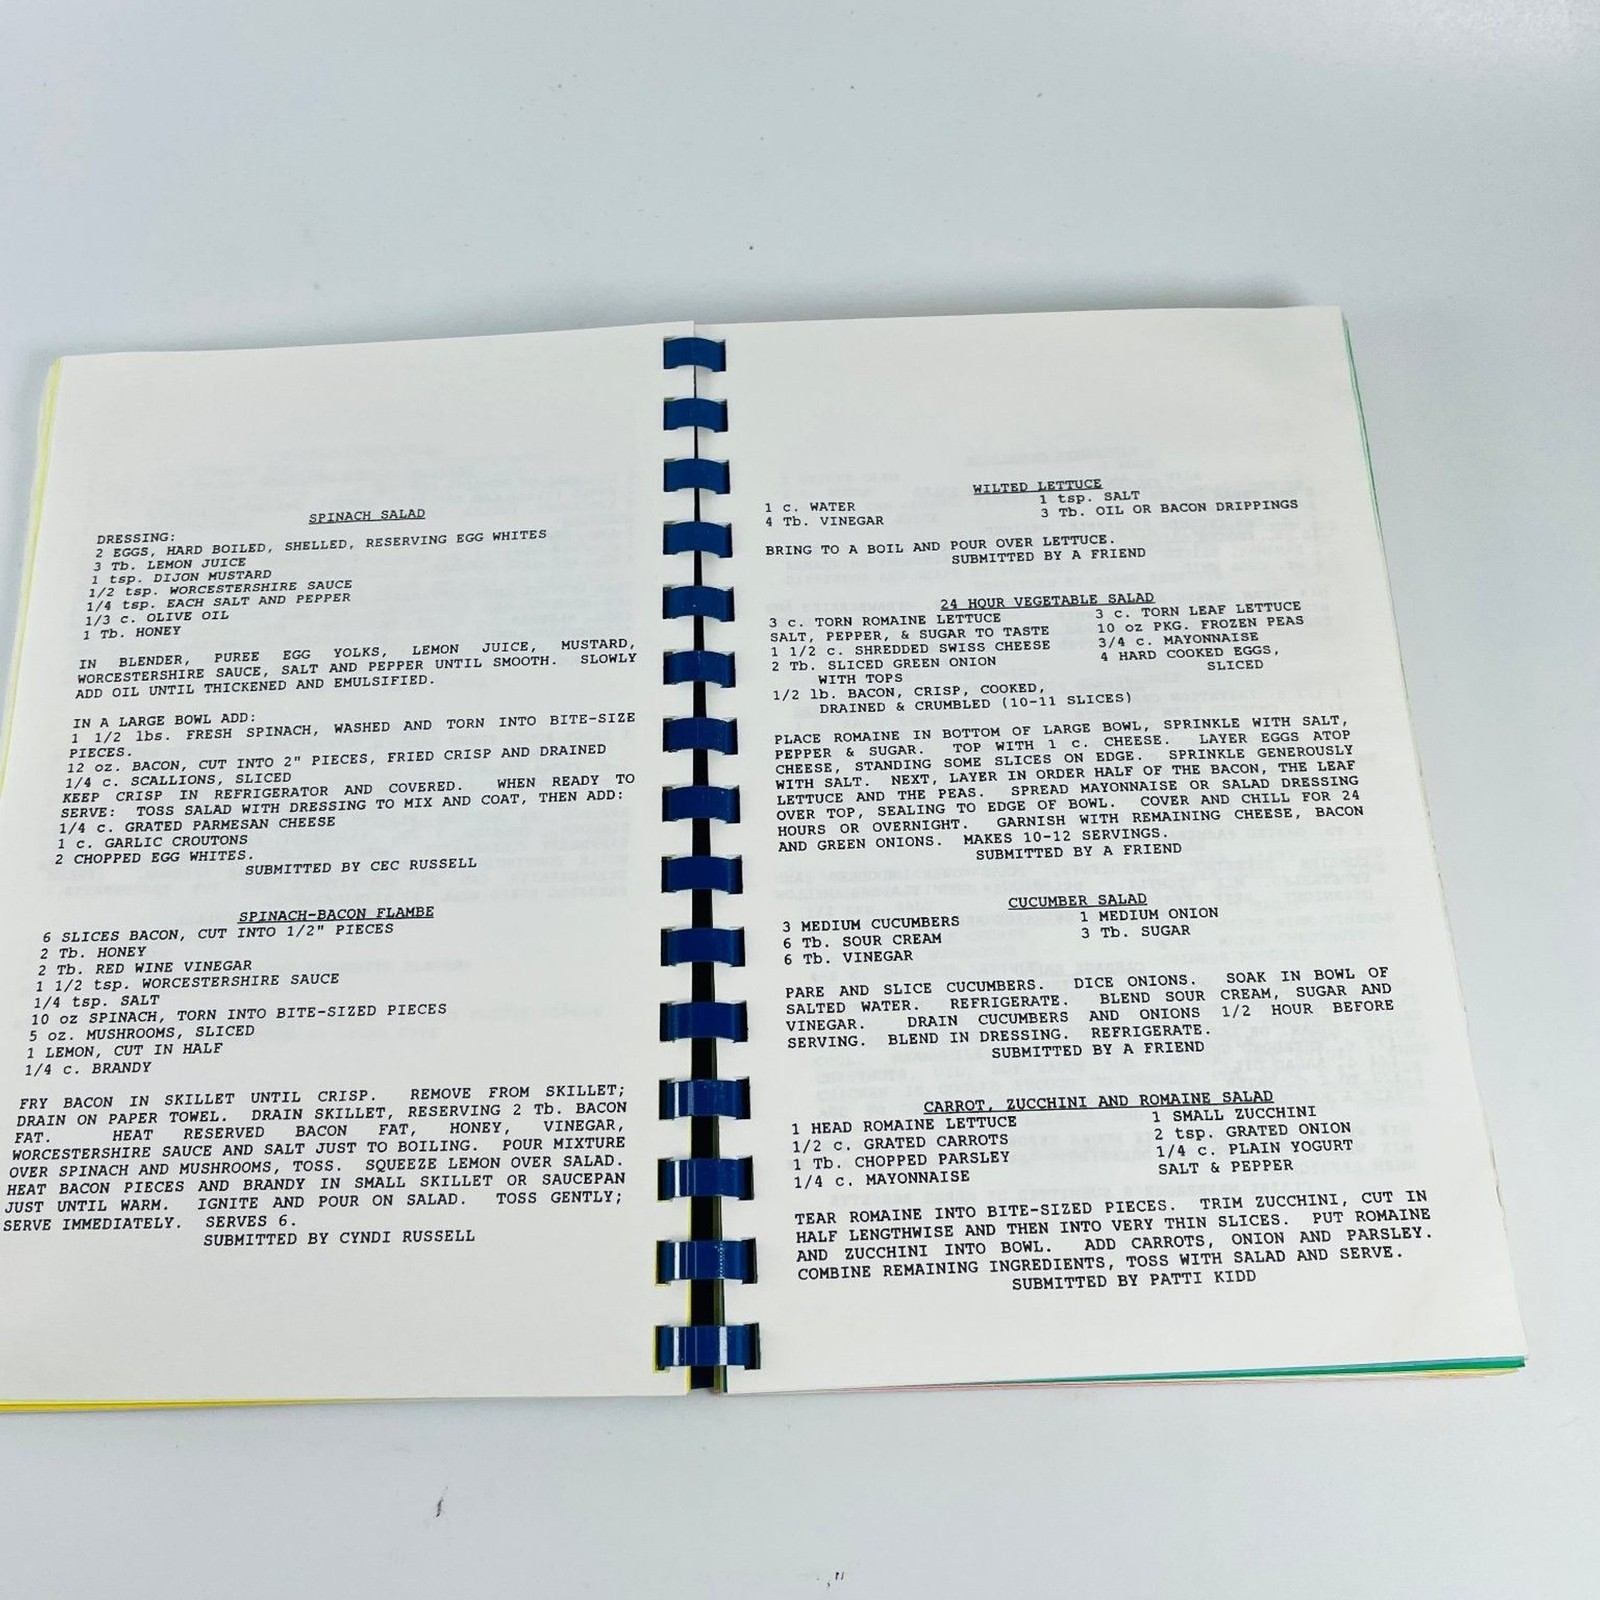 SPINACH SALAD
DRESSING:
2 EGGS, HARD BOILED, SHELLED, RESERVING EGG WHITES
3 Tb. LEMON JUICE
1 tsp. DIJON MUSTARD
1/2 tsp. WORCESTERSHIRE SAUCE
1/4 tsp. EACH SALT AND PEPPER
1/3 c. OLIVE OIL
1 Tb. HONEY
IN BLENDER, PUREE EGG YOLKS, LEMON JUICE, MUSTARD,
WORCESTERSHIRE SAUCE, SALT AND PEPPER UNTIL SMOOTH. SLOWLY
ADD OIL UNTIL THICKENED AND EMULSIFIED.
IN A LARGE BOWL ADD:
1 1/2 lbs. FRESH SPINACH, WASHED AND TORN INTO BITE-SIZE
PIECES.
12 oz. BACON, CUT INTO 2" PIECES, FRIED CRISP AND DRAINED
1/4 c. SCALLIONS, SLICED
KEEP CRISP IN REFRIGERATOR AND COVERED. WHEN READY TO
SERVE: TOSS SALAD WITH DRESSING TO MIX AND COAT, THEN ADD:
1/4 c. GRATED PARMESAN CHEESE
1 c. GARLIC CROUTONS
2 CHOPPED EGG WHITES.
SUBMITTED BY CEC RUSSELL
SPINACH-BACON FLAMBE
6 SLICES BACON, CUT INTO 1/2" PIECES
2 Tb. HONEY
2 Tb. RED WINE VINEGAR
1 1/2 tsp. WORCESTERSHIRE SAUCE
1/4 tsp. SALT
10 oz SPINACH, TORN INTO BITE-SIZED PIECES
5 oz. MUSHROOMS, SLICED
1 LEMON, CUT IN HALF
1/4 c. BRANDY
FRY BACON IN SKILLET UNTIL CRISP. REMOVE FROM SKILLET;
DRAIN ON PAPER TOWEL. DRAIN SKILLET, RESERVING 2 Tb. BACON
FAT. HEAT RESERVED BACON FAT, HONEY, VINEGAR,
WORCESTERSHIRE SAUCE AND SALT JUST TO BOILING. POUR MIXTURE
OVER SPINACH AND MUSHROOMS, TOSS. SQUEEZE LEMON OVER SALAD.
HEAT BACON PIECES AND BRANDY IN SMALL SKILLET OR SAUCEPAN
JUST UNTIL WARM. IGNITE AND POUR ON SALAD. TOSS GENTLY;
SERVE IMMEDIATELY. SERVES 6.
SUBMITTED BY CYNDI RUSSELL
WILTED LETTUCE
1 c. WATER 1 tsp. SALT
4 Tb. VINEGAR 3 Tb. OIL OR BACON DRIPPINGS
BRING TO A BOIL AND POUR OVER LETTUCE.
SUBMITTED BY A FRIEND
24 HOUR VEGETABLE SALAD
3 c. TORN ROMAINE LETTUCE 3 c. TORN LEAF LETTUCE
SALT, PEPPER, & SUGAR TO TASTE 10 oz PKG. FROZEN PEAS
1 1/2 c. SHREDDED SWISS CHEESE 3/4 c. MAYONNAISE
2 Tb. SLICED GREEN ONION 4 HARD COOKED EGGS,
WITH TOPS SLICED
1/2 lb. BACON, CRISP, COOKED,
DRAINED & CRUMBLED (10-11 SLICES)
PLACE ROMAINE IN BOTTOM OF LARGE BOWL, SPRINKLE WITH SALT,
PEPPER & SUGAR. TOP WITH 1 c. CHEESE. LAYER EGGS ATOP
CHEESE, STANDING SOME SLICES ON EDGE. SPRINKLE GENEROUSLY
WITH SALT. NEXT, LAYER IN ORDER HALF OF THE BACON, THE LEAF
LETTUCE AND THE PEAS. SPREAD MAYONNAISE OR SALAD DRESSING
OVER TOP, SEALING TO EDGE OF BOWL. COVER AND CHILL FOR 24
HOURS OR OVERNIGHT. GARNISH WITH REMAINING CHEESE, BACON
AND GREEN ONIONS. MAKES 10-12 SERVINGS.
SUBMITTED BY A FRIEND
CUCUMBER SALAD
3 MEDIUM CUCUMBERS 1 MEDIUM ONION
6 Tb. SOUR CREAM 3 Tb. SUGAR
6 Tb. VINEGAR
PARE AND SLICE CUCUMBERS. DICE ONIONS. SOAK IN BOWL OF
SALTED WATER. REFRIGERATE. BLEND SOUR CREAM, SUGAR AND
VINEGAR. DRAIN CUCUMBERS AND ONIONS 1/2 HOUR BEFORE
SERVING. BLEND IN DRESSING. REFRIGERATE.
SUBMITTED BY A FRIEND
CARROT, ZUCCHINI AND ROMAINE SALAD
1 HEAD ROMAINE LETTUCE 1 SMALL ZUCCHINI
1/2 c. GRATED CARROTS 2 tsp. GRATED ONION
1 Tb. CHOPPED PARSLEY 1/4 c. PLAIN YOGURT
1/4 c. MAYONNAISE SALT & PEPPER
TEAR ROMAINE INTO BITE-SIZED PIECES. TRIM ZUCCHINI, CUT IN
HALF LENGTHWISE AND THEN INTO VERY THIN SLICES. PUT ROMAINE
AND ZUCCHINI INTO BOWL. ADD CARROTS, ONION AND PARSLEY.
COMBINE REMAINING INGREDIENTS, TOSS WITH SALAD AND SERVE.
SUBMITTED BY PATTI KIDD